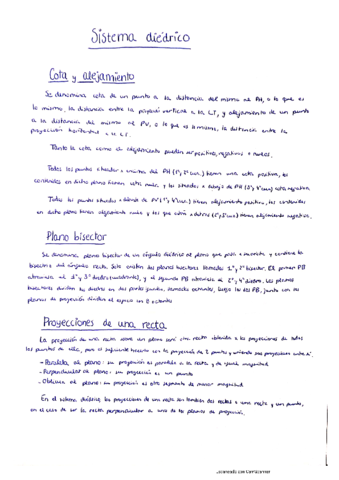 Sistema diédrico
Cota y alejamiento
Se denomina cota de un punto a la distancia del mismo al PH, o lo que es
lo mismo, la distancia entre la proyección vertical a la LT, y alejamiento de un punto
a la distancia del mismo al PV, o lo que es lo mismo, la distancia entre la
proyección horizontal a la LT.
Tanto la cota como el alejamiento pueden ser positivos, negativos o nulos.
Todos los puntos situados encima del PH (1º, 2º cuad.) tienen una cota positiva, los
contenidos en dicho plano tienen cota nula, y los situados debajo de PH (3º, 4º cuad) cota negativa.
Todos los puntos situados delante de PV (1º, 4º cuad.) tienen alejamiento positivo, los contenidos
en dicho plano tienen alejamiento nulo y los que están detrás (2º, 3º cuad) tienen alejamiento negativo.
Plano bisector
Se denomina plano bisector de un ángulo diédrico al plano que pasa
bisectriz del ángulo recto. Solo existen dos planos bisectores llamados 1º y 2º bisector. El primer PB
atraviesa el 1º y 3º diedro (cuadrante), y el segundo PB atraviesa el 2º y 4º diedro. Los planos
bisectores dividen los diedros en dos partes iguales, llamadas octantes, luego los dos PB, junto con los
planos de proyección dividen el espacio en 8 octantes.
Proyecciones de una recta
La proyección de una recta sobre un plano será otra recta obtenida de las proyecciones de todos
los puntos de ella, pero es suficiente hacerlo con la proyección de 2 puntos y uniendo sus proyecciones entre sí.
- Paralela al plano: su proyección es paralela a la recta y de igual magnitud
- Perpendicular al plano: su proyección es un punto
- Oblicua al plano: su proyección es otro segmento de menor magnitud
En el sistema diédrico las proyecciones de una recta son también dos rectas o una recta y un punto,
en el caso de ser la recta perpendicular a uno de los planos de proyección.
Escaneado con CamScanner